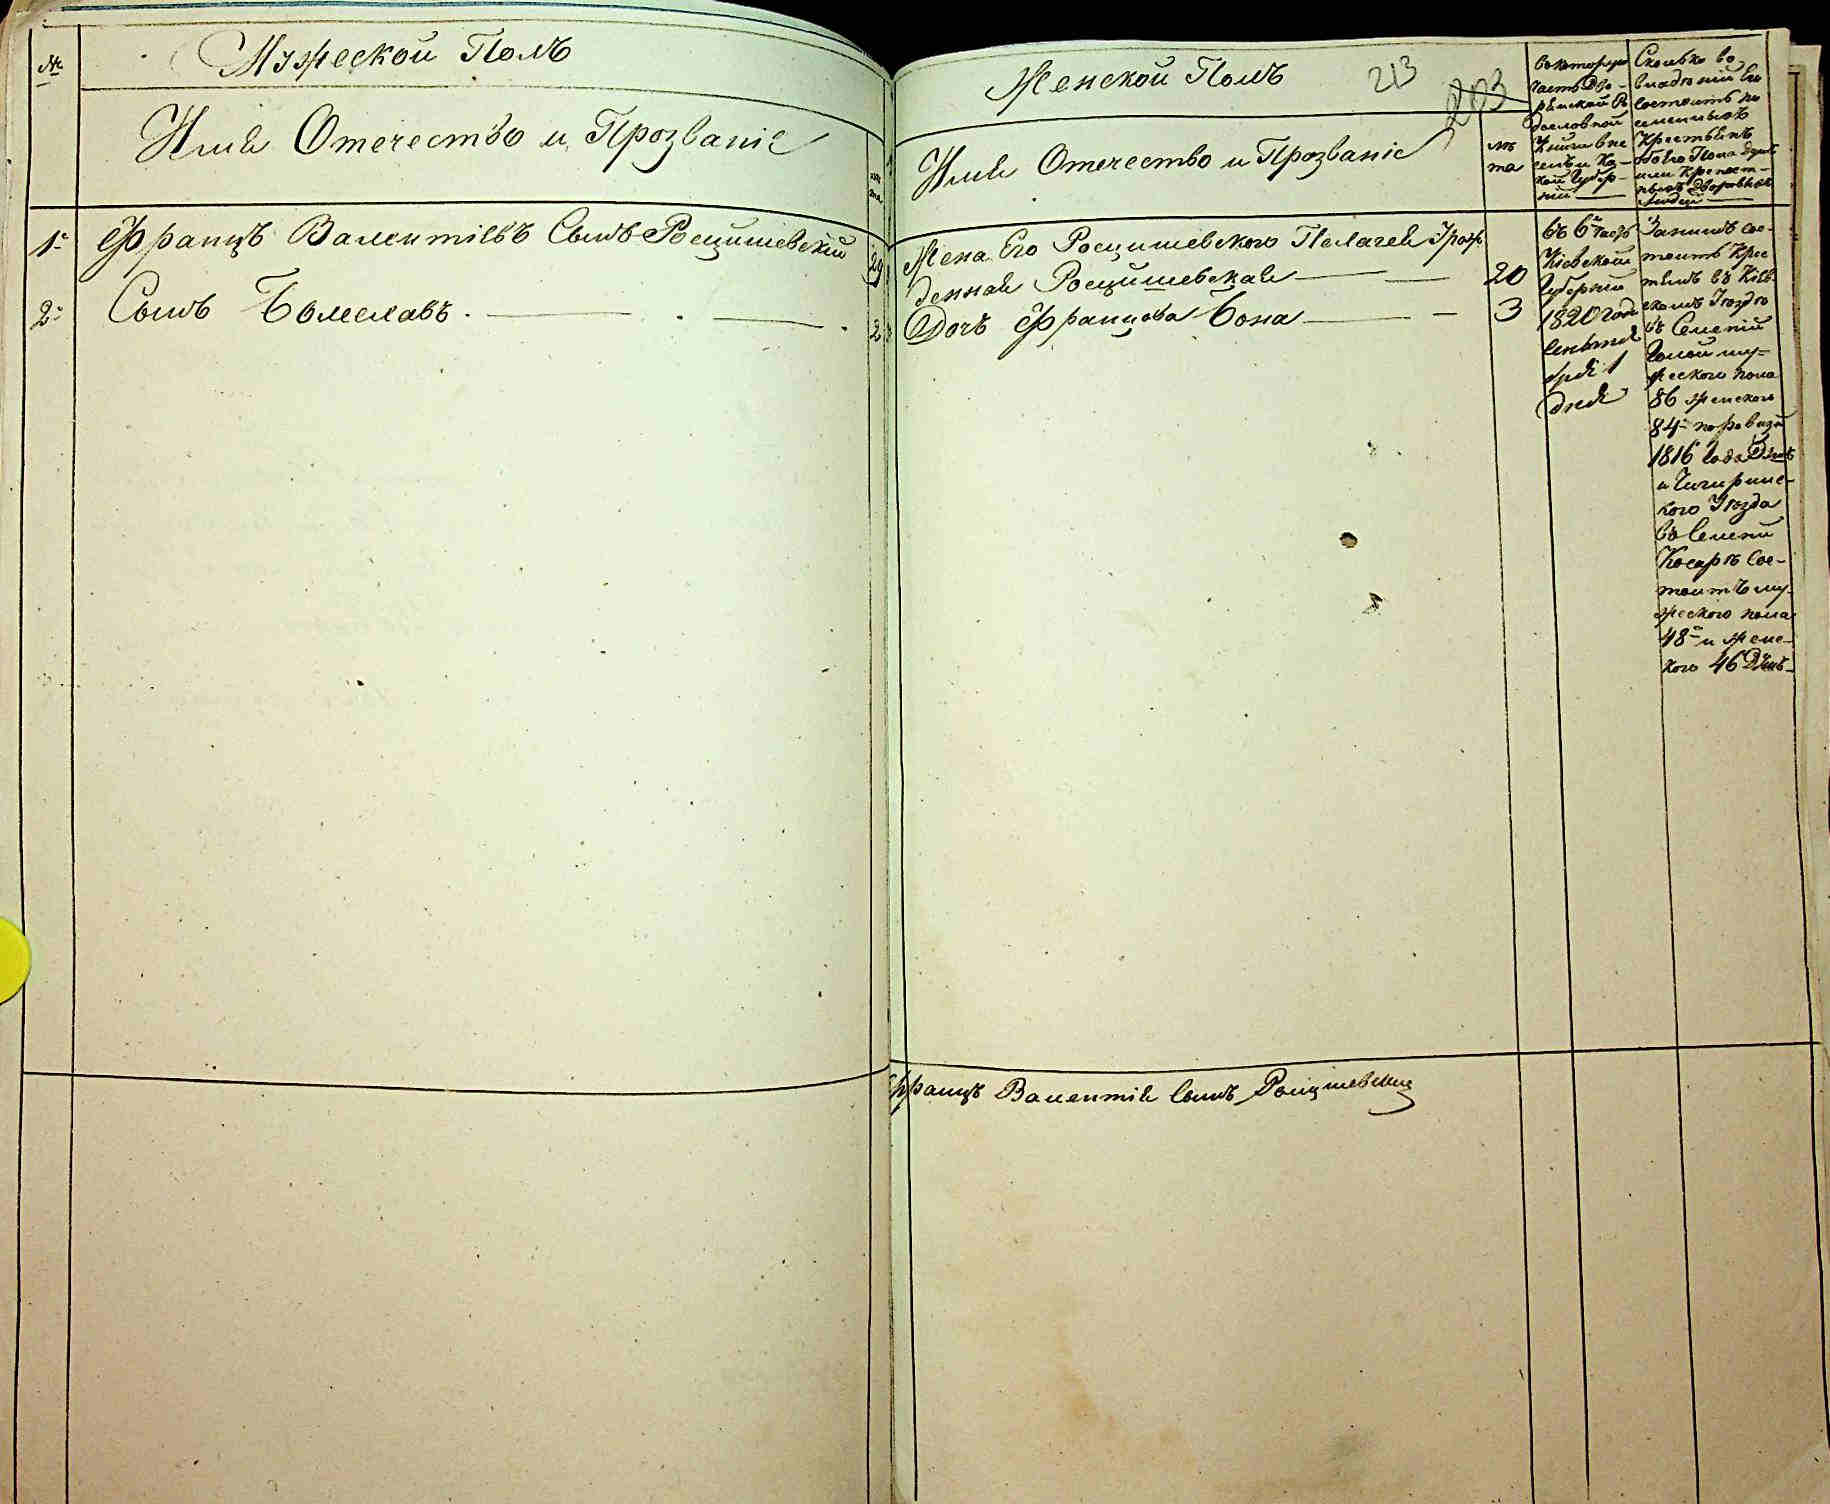 №
Мужеской Полъ
Имя Отечество и Прозваніе
лѣ
та
1е Францъ Валентіевъ Сынъ Росцишевскій 29
2е Сынъ Болеславъ. 2
Женской Полъ
213
203
Имя Отечество и Прозваніе
лѣ
та
Жена Его Росцишевского Пелагея Урож
денная Росцишевская 20
Дочь Францова Бона 3
Вокоторую
Часть Дво-
рянской Ро
дословной
Книги вне
сенъ и Ка-
кой Губер-
ніи
въ 6ю Часть
Кіевской
Губерніи
1820 Года
Сентя
бря 1
дня
Сколько во
владѣніи Его
состоитъ по
именныхъ
Крестьянъ
обоего Пола душъ
или Крепост-
ныхъ Дворовыхъ
Людей
Занимъ сос-
тоитъ Крес
тьянъ въ Кіев
скомъ Уездѣ
въ Селеніи
му-
жеского пола
86 женского
84 по ревизіи
1816 Года Душъ
и Чигирине-
кого Уезда
въ Селеніи
Косарѣ Сос-
тоитъ му-
жеского пола
48 и женс-
кого 46 Душъ
Францъ Валентія Сынъ Росцишевскій